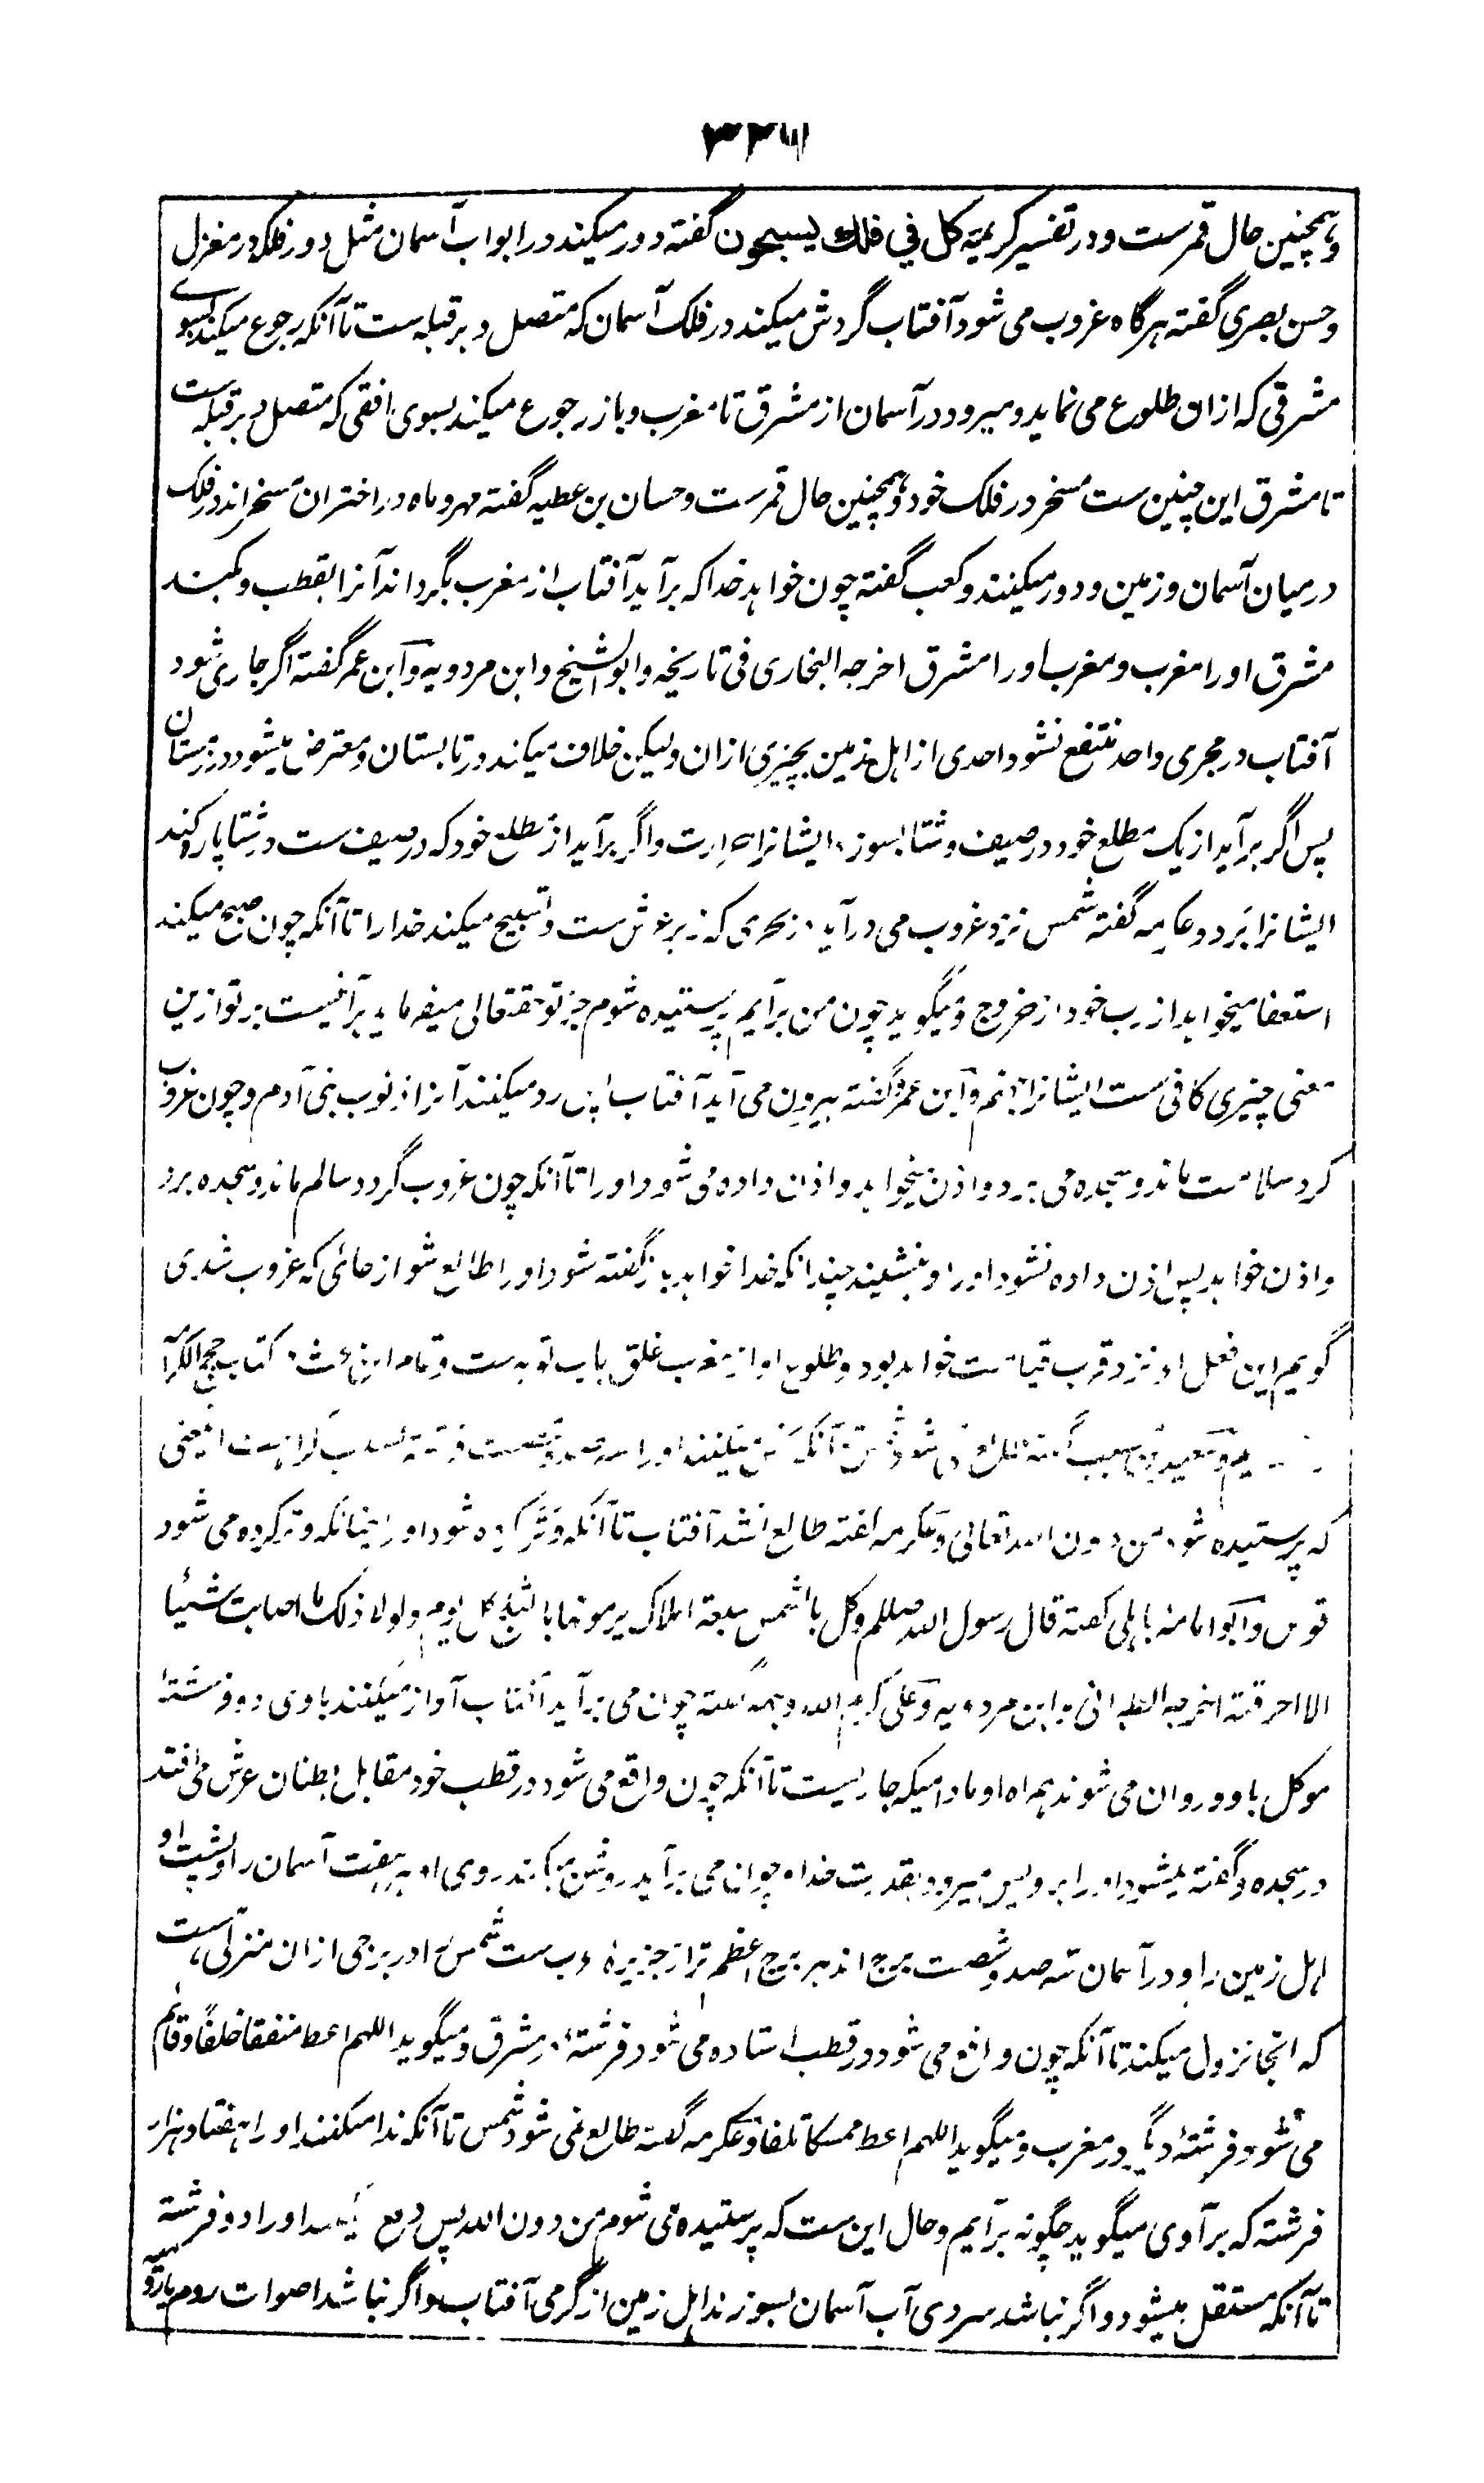 ۳۳۶
وهمچنین حال قمرست و در تفسیر کریمه کل في فلك یسبحون گفته دور میکنند در ابواب آسمان مثل دور فلکه در مغزل
وحسن بصری گفته هرگاه غروب می شود آفتاب گردش میکند در فلک آسمان که متصل دبر قبله ست تا آنکه رجوع میکند بسوے
مشرقی که ازان طلوع می نماید و میرود در آسمان از مشرق تا مغرب و باز رجوع میکند بسوی افقی که متصل دبر قبله ست
تا مشرق این چنین ست مسخر در فلک خود و همچنین حال قمرست و حسان بن عطیه گفته مهر و ماه و اختران مسخر اند در فلک
درمیان آسمان و زمین و دور میکنند و کعب گفته چون خواهد خدا که برآید آفتاب از مغرب بگرداند آنرا بقطب و کند
مشرق اورا مغرب و مغرب اورا مشرق اخرجه البخاری فی تاریخه و ابو الشیخ و ابن مردویه و ابن عمر گفته اگر جاری شود
آفتاب در مجری واحد منتفع نشود احدی از اهل زمین بچیزی ازان ولیکن خلاف میکند در تابستان و معترض میشود در زمستان
پس اگر برآید از یک مطلع خود در صیف و شتا بسوزد ایشانرا حرارت و اگر برآید از مطلع خود که در صیف ست در شتا پاره کند
ایشانرا برد و عکرمه گفته شمس نزد غروب می درآید در بحری که زیر عرش ست و تسبیح میکند خدا را تا آنکه چون صبح میکند
استعفا میخواهد از رب خود از خروج و میگوید چون من برآیم پرستیده شوم جز تو حقتعالی میفرماید برآ نیست بر تو ازین
معنی چیزی کافی ست ایشانرا جهنم و ابن عمر گفته بیرون می آید آفتاب پس رد میکنند آنرا ذنوب بنی آدم و چون غروب
کرد سلامت ماند و سجده می برد و اذن میخواهد و اذن داده می شود اورا تا آنکه چون غروب گردد سالم ماند و سجده برد
و اذن خواهد پس اذن داده نشود اورا و بنشیند چندانکه خدا خواهد باز گفته شود اورا طالع شو از جائی که غروب شدی
گویم این فعل او نزد قرب قیامت خواهد بود و طلوع او از مغرب غلق باب توبه ست و تمام این بحث در کتاب حجج الکرامه
که پرستیده شود من دون الله تعالی و عکرمه گفته طالع نشد آفتاب تا آنکه وتر کرده شود اورا چنانکه وتر کرده می شود
قوس و ابو امامه باهلی گفته قال رسول الله صللم وکل بالشمس سبعة املاک یرمونها بالثلج کل یوم ولولا ذلک ما اصابت شیئا
الا احرقته اخرجه الطبرانی و ابن مردویه و علی کرم الله وجهه گفته چون می برآید آفتاب آواز میکنند باوی دو فرشتۀ
موکل باو و روان می شوند همراه او مادامیکه جاریست تا آنکه چون واقع می شود در قطب خود مقابل بطنان عرش می افتد
در سجده و گفته میشود اورا برو پس میرود بقدرت خدا و چون می برآید روشن میکند روی او بهفت آسمان را و پشت او
اهل زمین را و در آسمان سه صد و شصت برج اند هر برج اعظم تر از جزیره عرب ست شمس را در برجی ازان منزلی است
که آنجا نزول میکند تا آنکه چون واقع می شود در قطب استاده می شود فرشتۀ در مشرق و میگوید اللهم اعط منفقا خلفا و قائم
می شود فرشتۀ دیگر در مغرب و میگوید اللهم اعط ممسکا تلفا و عکرمه گفته طالع نمی شود شمس تا آنکه ندا میکنند اورا هفتاد هزار
فرشته که برآ وی میگوید چگونه برآیم و حال این ست که پرستیده می شوم من دون الله پس دفع اورا دو فرشته
تا آنکه مستقل میشود و اگر نباشد سردی آب آسمان بسوزند اهل زمین از گرمی آفتاب و اگر نباشد اصوات روم